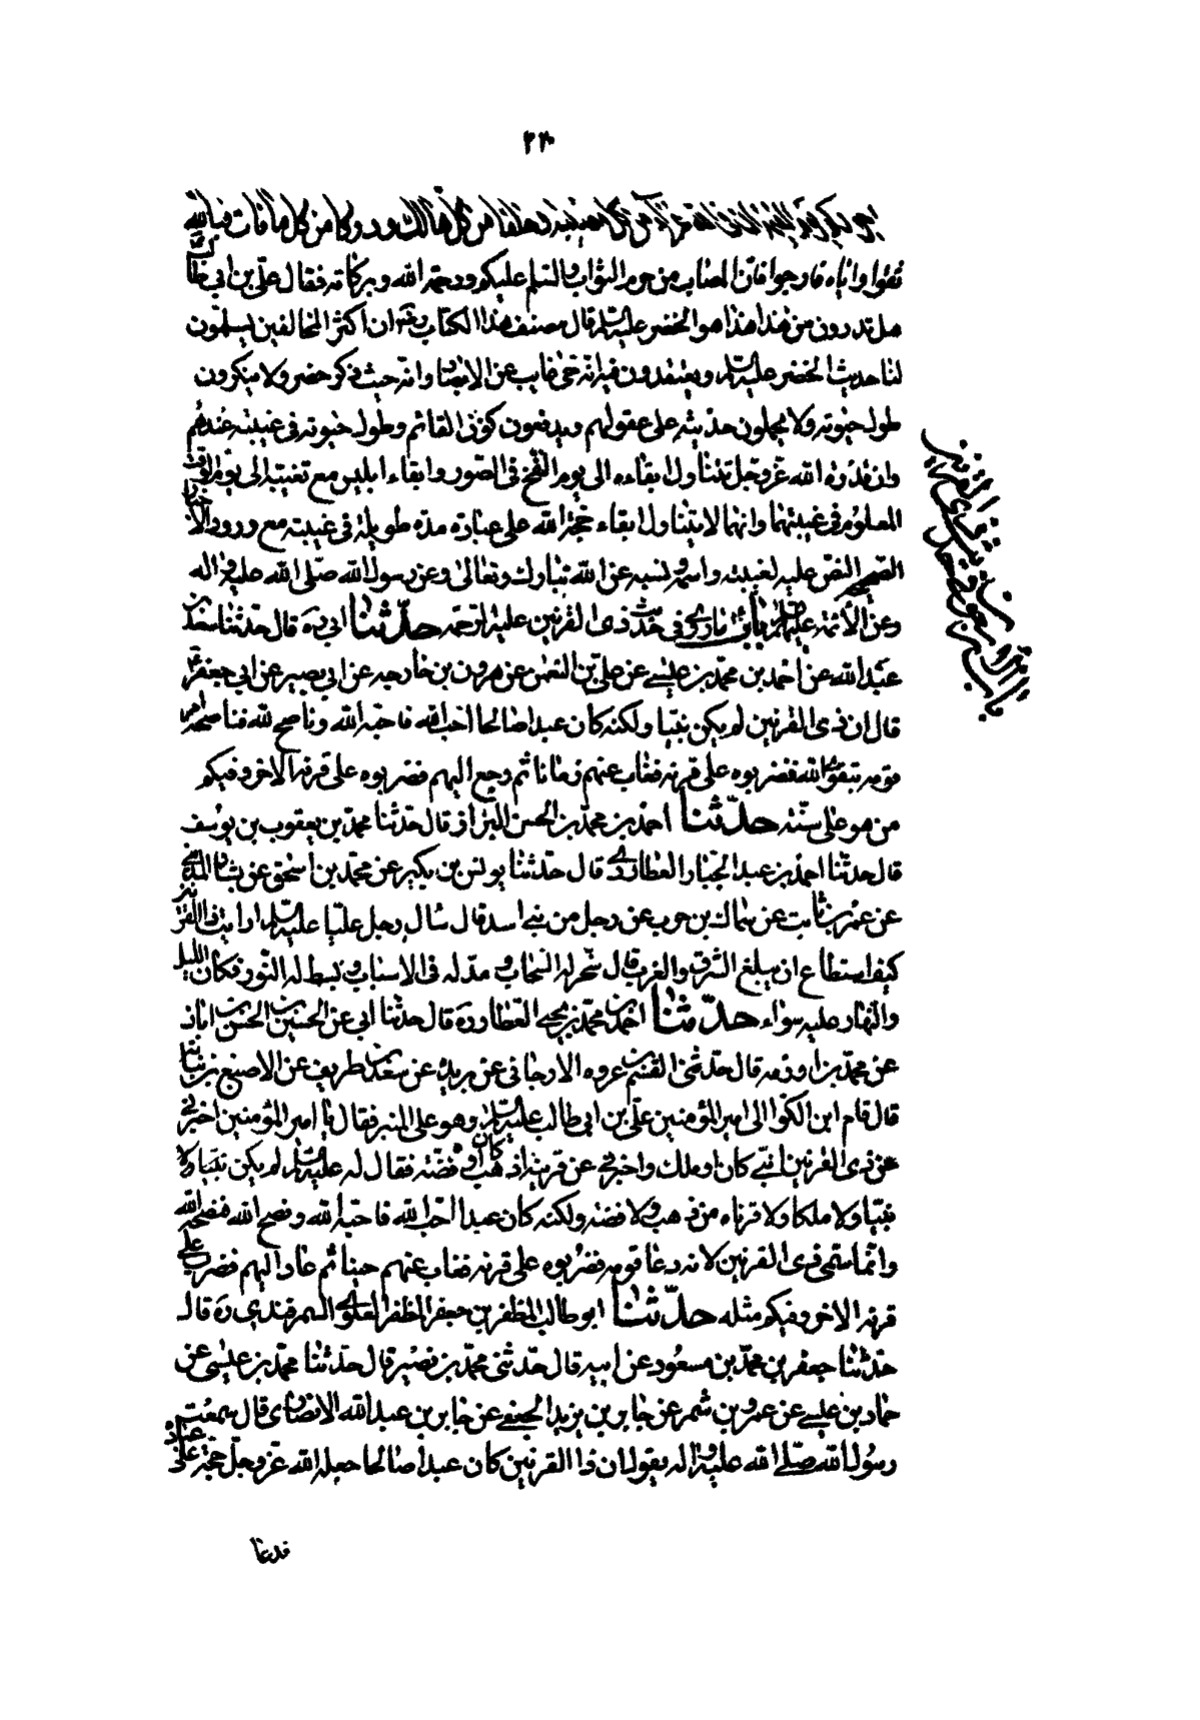 ۲۲۰
اجوركم يوم القيمة ان فى الله عزاء من كل مصيبة وخلفا من كل هالك ودركا من كل ما فات فبالله
فثقوا واياه فارجوا فان المصاب من حرم الثواب والسلم عليكم ورحمة الله وبركاته فقال على بن ابى طالب
هل تدرون من هذا هذا هو الخضر عليه السلم قال مصنف هذا الكتاب ره ان اكثر المخالفين يسلمون
لنا حديث الخضر عليه السلم ويعتقدون فيه انه حى غايب عن الابصار وانه حيث ذكر حضر ولا ينكرون
طول حيوته ولا يحملون حديثه على عقولهم ويدفعون كون القائم وطول حيوته فى غيبته عندهم
وان قدرة الله عز وجل تتناول ابقاءه الى يوم النفخ فى الصور وابقاء ابليس مع لعنته الى يوم الوقت
المعلوم فى غيبتهما وانها لا يتناول ابقاء حجة الله على عباده مدة طويلة فى غيبته مع ورود الاخبار
الصحيحه النص عليه لغيبته واسمه ونسبه عن الله تبارك وتعالى وعن رسول الله صلى الله عليه واله
وعن الائمه عليهم السلم باب ما روى فى حديث ذى القرنين عليه الرحمه حدثنا ابى ره قال حدثنا سعد بن
عبد الله عن احمد بن محمد بن عيسى عن على بن النعمن عن هرون بن خارجه عن ابى بصير عن ابى جعفر ع
قال ان ذى القرنين لم يكن نبيا ولكنه كان عبدا صالحا احب الله فاحبه الله وناصح لله فناصحه امر
قومه بتقوى الله فضربوه على قرنه فغاب عنهم زمانا ثم رجع اليهم فضربوه على قرنه الاخر وفيكم
من هو على سنته حدثنا احمد بن محمد بن الحسن البزاز قال حدثنا محمد بن يعقوب بن يوسف
قال حدثنا احمد بن عبد الجبار العطاردى قال حدثنا يونس بن بكير عن محمد بن اسحق عن بشار المدنى
عن عمر بن ثابت عن سماك بن حرب عن رجل من بنى اسد قال سال رجل عليا عليه السلم ارايت ذا القرنين
كيف استطاع ان يبلغ الشرق والغرب قال سخر له السحاب ومد له فى الاسباب وبسط له النور فكان الليل
والنهار عليه سواء حدثنا احمد بن محمد بن يحيى العطار ره قال حدثنا ابى عن الحسين بن الحسن بن ابان
عن محمد بن اورمه قال حدثنى القسم بن عروه الارجانى عن بريد عن سعد بن طريف عن الاصبغ بن نباته
قال قام ابن الكوا الى امير المؤمنين على بن ابى طالب عليه السلم وهو على المنبر فقال يا امير المؤمنين اخبرنى
عن ذى القرنين انبى كان او ملك واخبرنى عن قرنيه اذهب كان او فضه فقال له عليه السلم لم يكن نبيا ولا
نبيا ولا ملكا ولا قرناه من ذهب ولا فضه ولكنه كان عبدا احب الله فاحبه الله ونصح الله فنصحه الله
وانما سمى ذى القرنين لانه دعا قومه فضربوه على قرنه فغاب عنهم حينا ثم عاد اليهم فضرب على
قرنه الاخر وفيكم مثله حدثنا ابو طالب المظفر بن جعفر المظفر العلوى السمرقندى ره قال
حدثنا جعفر بن محمد بن مسعود عن ابيه قال حدثنى محمد بن نصير قال حدثنا محمد بن عيسى عن
حماد بن عيسى عن عمرو بن شمر عن جابر بن يزيد الجعفى عن جابر بن عبد الله الانصارى قال سمعت
رسول الله صلى الله عليه واله يقول ان ذا القرنين كان عبدا صالحا جعله الله عز وجل حجة على عباده
فدعا